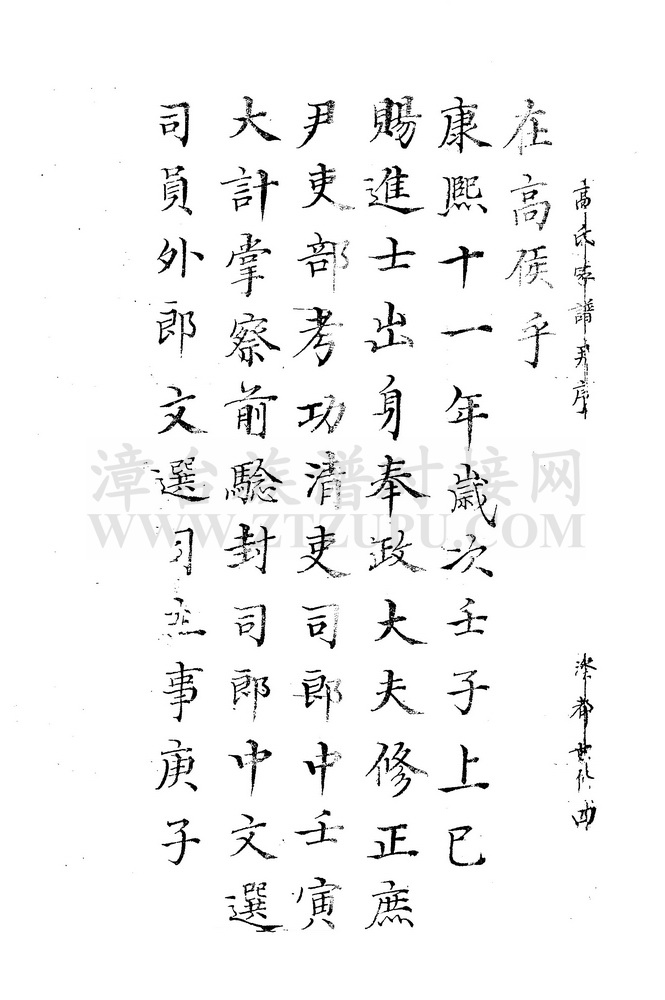 高氏家譜 序
在高侯乎
康熙十一年歲次壬子上巳
賜進士出身奉政大夫修正庶
尹吏部考功清吏司郎中壬寅
大計掌察前騐封司郎中文選
司員外郎文選司主事庚子
漳台族谱对接网
WWW.ZTZUPU.COM